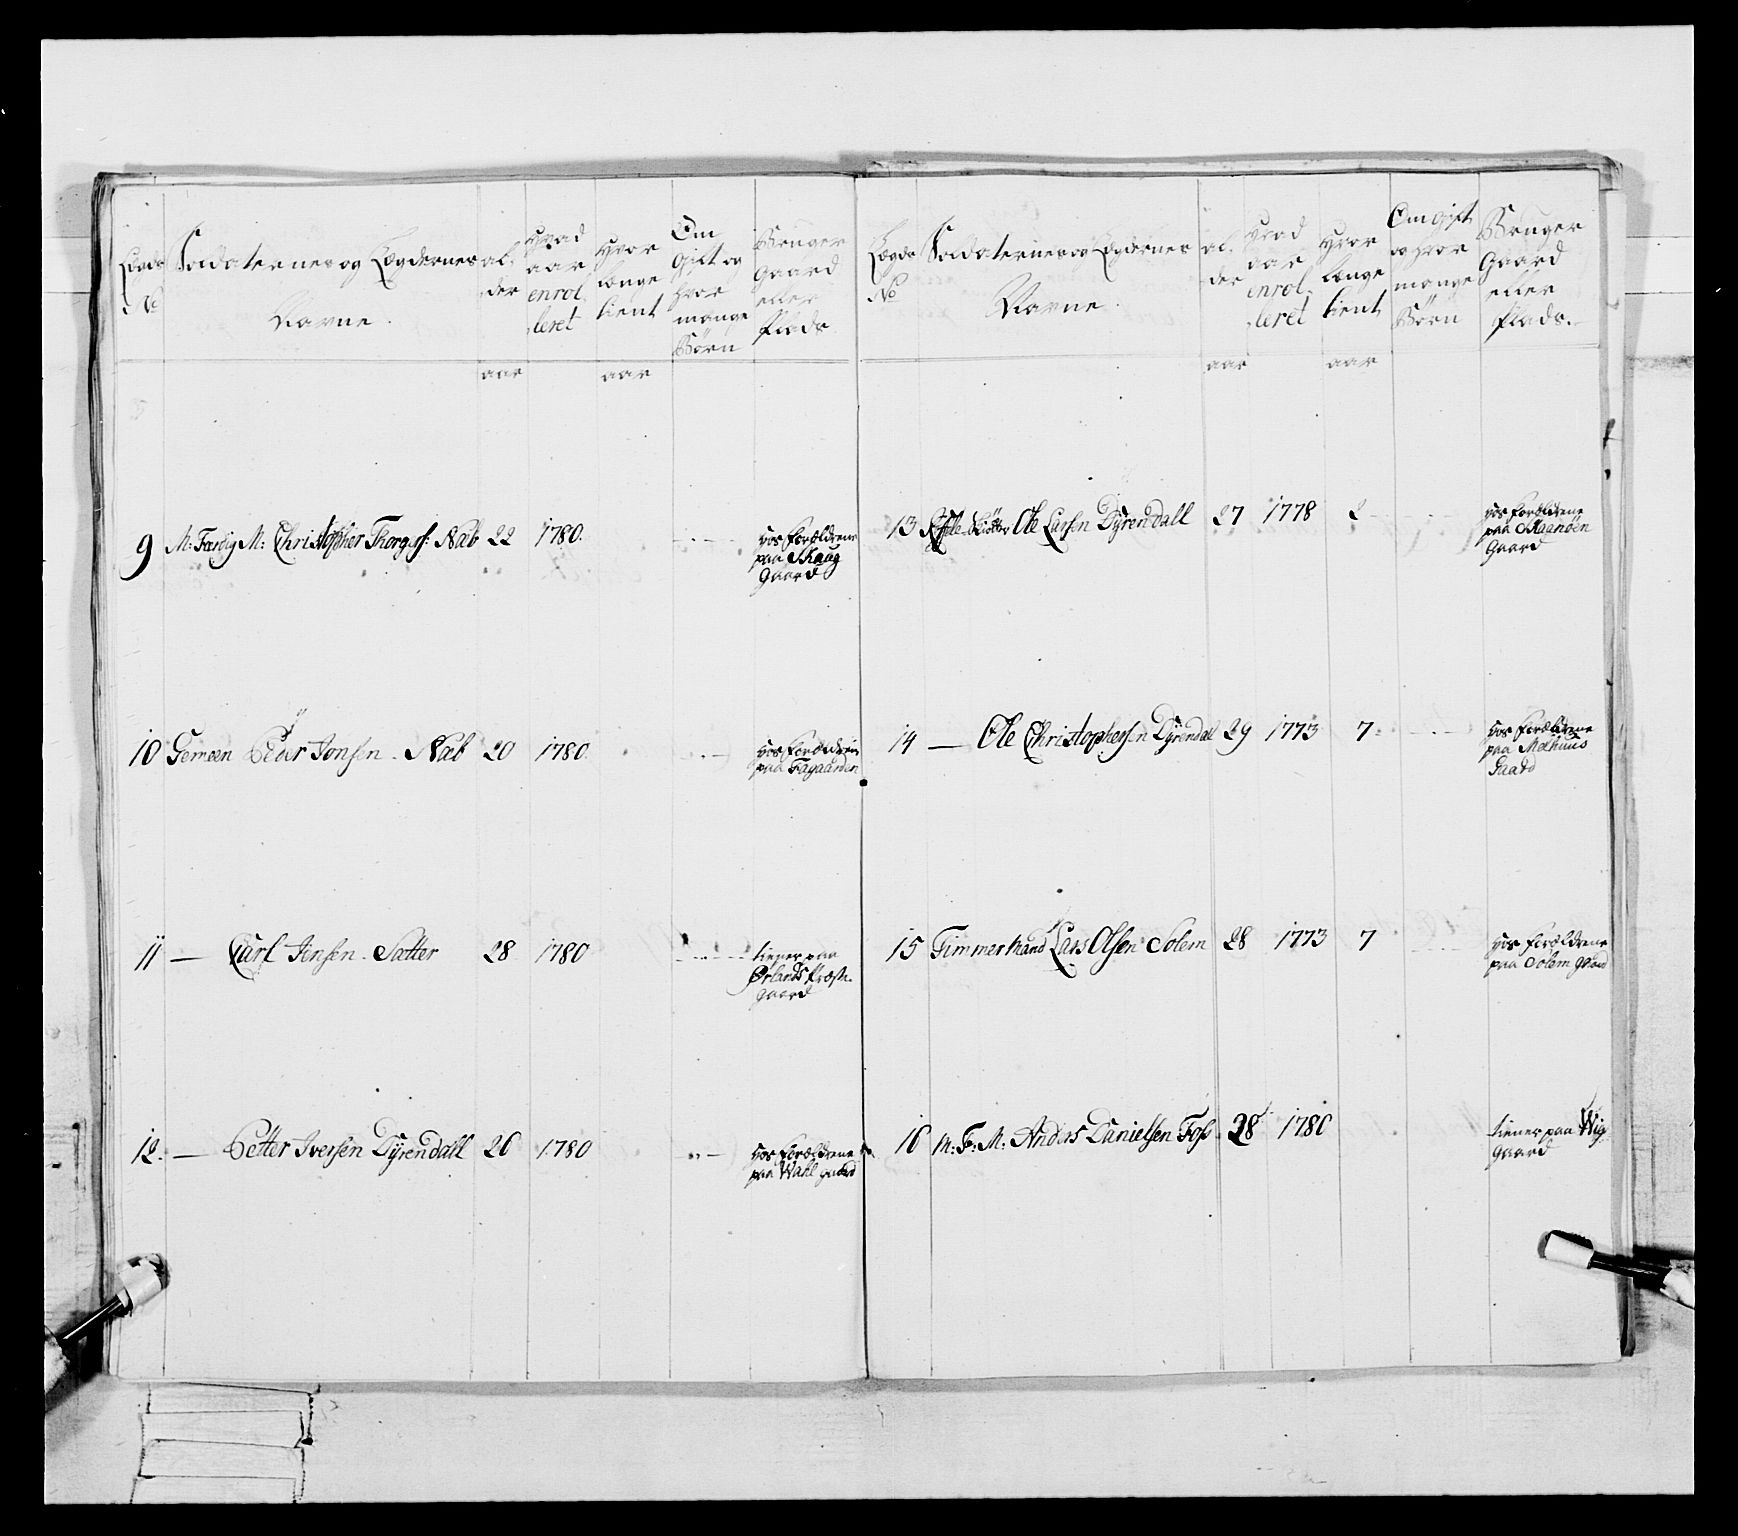 Lægds No
Soldaternes og Lægdernes Navne.
al-der
aar
Hvad aar enrol-leret
Hvor længe tient
aar
Om Gift og hvor mange Børn
Bruger Gaard eller Plads
9 M: Færdig M: Christopher Thorgrs: Næb 22 1780. hos Forældrene
paa Skaug
Gaard
10 Gemeen Peder Jonsen. Næb 20 1780 hos Forældrene
paa Fagaarden
11 — Carl Jensen. Sætter 28 1780 tiener paa
Ørlands Præste-
gaard
12. — Petter Iversen Dÿrendall 26 1780 hos Forældrene
paa Wahl gaard
Lægds No
Soldaternes og Lægdernes Navne.
al-der
aar
Hvad aar enrol-leret
Hvor længe tient
aar
Om gift og hvor mange Børn
Bruger Gaard eller Plads.
13 Ole Larsen Dÿrendall 27 1778 2 hos Forældrene
paa
Gaard
14 — Ole Christophersen Dÿrendal 29 1773 7 hos Forældrene
paa Melhuus
Gaard
15 Timmermand Lars Olsen Solem 28 1773 7 hos Forældrene
paa Solem gaard
16 M: F: M: Anders Danielsen Foss 28 1780 tiener paa Wig
Gaard